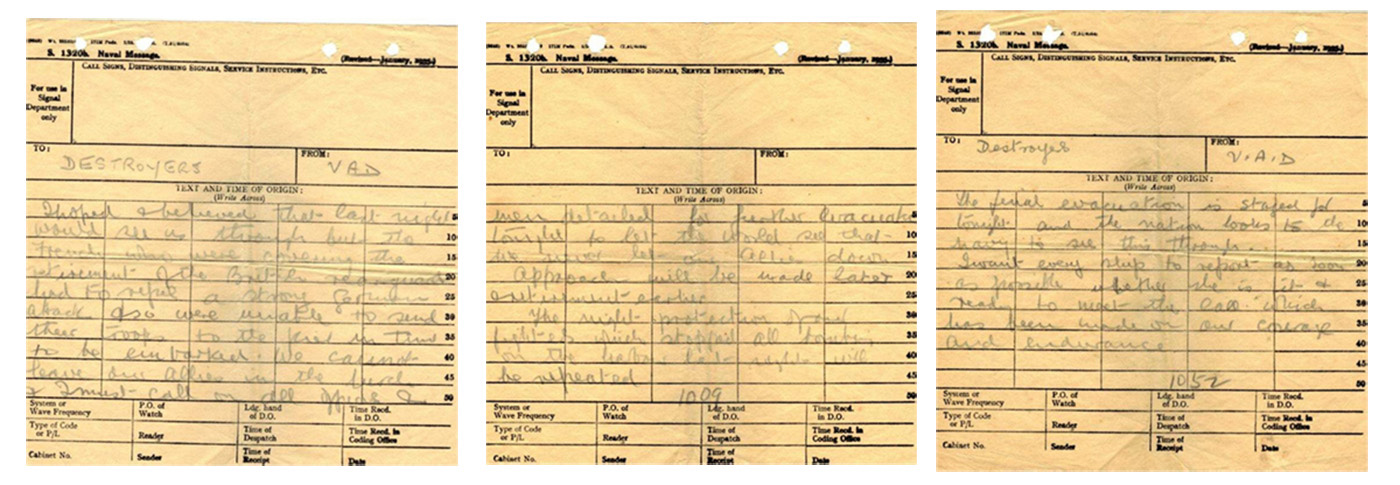 S. 1320b. Naval Message.
(Revised—January, 1935.)
CALL SIGNS, DISTINGUISHING SIGNALS, SERVICE INSTRUCTIONS, ETC.
For use in
Signal
Department
only
TO:
DESTROYERS
FROM:
VAD
TEXT AND TIME OF ORIGIN:
(Write Across)
I hoped & believed that last night
would see us through but the
French who were covering the
retirement of the British rearguard
had to repel a strong German
attack & so were unable to send
their troops to the pier in time
to be embarked. We cannot
leave our allies in the lurch
& I must call on all officers &
5
10
15
20
25
30
35
40
45
50
System or
Wave Frequency
P.O. of
Watch
Ldg. hand
of D.O.
Time Recd.
in D.O.
Type of Code
or P/L
Reader
Time of
Despatch
Time Recd. in
Coding Office
Cabinet No.
Sender
Time of
Receipt
Date
S. 1320b. Naval Message.
(Revised—January, 1935.)
CALL SIGNS, DISTINGUISHING SIGNALS, SERVICE INSTRUCTIONS, ETC.
For use in
Signal
Department
only
TO:
FROM:
TEXT AND TIME OF ORIGIN:
(Write Across)
men detailed for further evacuation
tonight to let the world see that
we never let our Allies down
Approach will be made later
& retirement earlier
The night protection
fighters which stopped all bombing
on the harbour last night will
be repeated
1009
5
10
15
20
25
30
35
40
45
50
System or
Wave Frequency
P.O. of
Watch
Ldg. hand
of D.O.
Time Recd.
in D.O.
Type of Code
or P/L
Reader
Time of
Despatch
Time Recd. in
Coding Office
Cabinet No.
Sender
Time of
Receipt
Date
S. 1320b. Naval Message.
(Revised—January, 1935.)
CALL SIGNS, DISTINGUISHING SIGNALS, SERVICE INSTRUCTIONS, ETC.
For use in
Signal
Department
only
TO:
Destroyers
FROM:
V.A.D
TEXT AND TIME OF ORIGIN:
(Write Across)
The final evacuation is staged for
tonight and the nation looks to the
navy to see this through.
I want every ship to report as soon
as possible whether she is fit &
ready to meet the call which
has been made on our courage
and endurance
1052
5
10
15
20
25
30
35
40
45
50
System or
Wave Frequency
P.O. of
Watch
Ldg. hand
of D.O.
Time Recd.
in D.O.
Type of Code
or P/L
Reader
Time of
Despatch
Time Recd. in
Coding Office
Cabinet No.
Sender
Time of
Receipt
Date